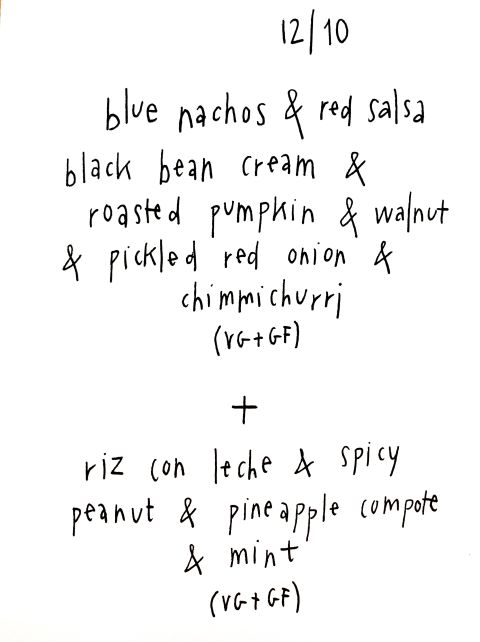 12/10
blue nachos & red salsa
black bean cream &
roasted pumpkin & walnut
& pickled red onion &
chimmichurri
(VG+GF)
+
riz con leche & spicy
peanut & pineapple compote
& mint
(VG+GF)